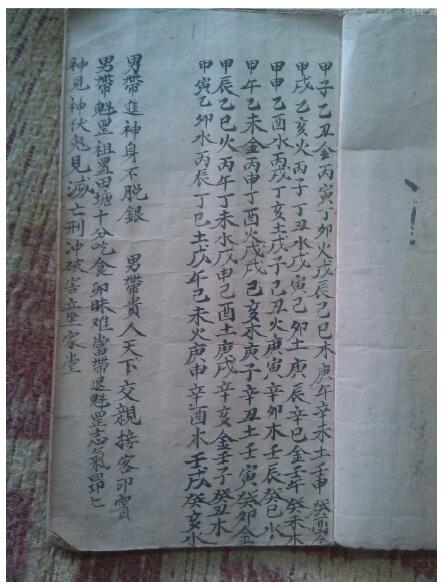 甲子乙丑金丙寅丁卯火戊辰己巳木庚午辛未土壬申癸酉金
甲戌乙亥火丙子丁丑水戊寅己卯土庚辰辛巳金壬午癸未木
甲申乙酉水丙戌丁亥土戊子己丑火庚寅辛卯木壬辰癸巳水
甲午乙未金丙申丁酉火戊戌己亥木庚子辛丑土壬寅癸卯金
甲辰乙巳火丙午丁未水戊申己酉土庚戌辛亥金壬子癸丑木
甲寅乙卯水丙辰丁巳土戊午己未火庚申辛酉木壬戌癸亥水
男帶進神身不脱銀 男帶貴人天下交親接客印賞
男帶魁罡祖置田塘十分吃食卯昧难當帶退魁罡志氣昂匕
神見神伏鬼見滅亡刑冲破害立坐家堂